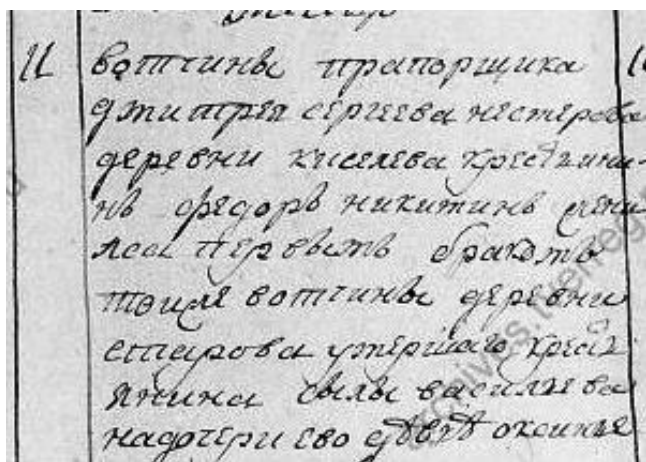 11
вотчины прапорщика
дмитрея сергеева нестерова
деревни киселева крестьяни-
нъ федоръ никитинъ жени
лса первымъ бракомъ
тоеже вотчины деревни
старова умершаго кресть
янина силы васильева
надочери ево девке оксинье